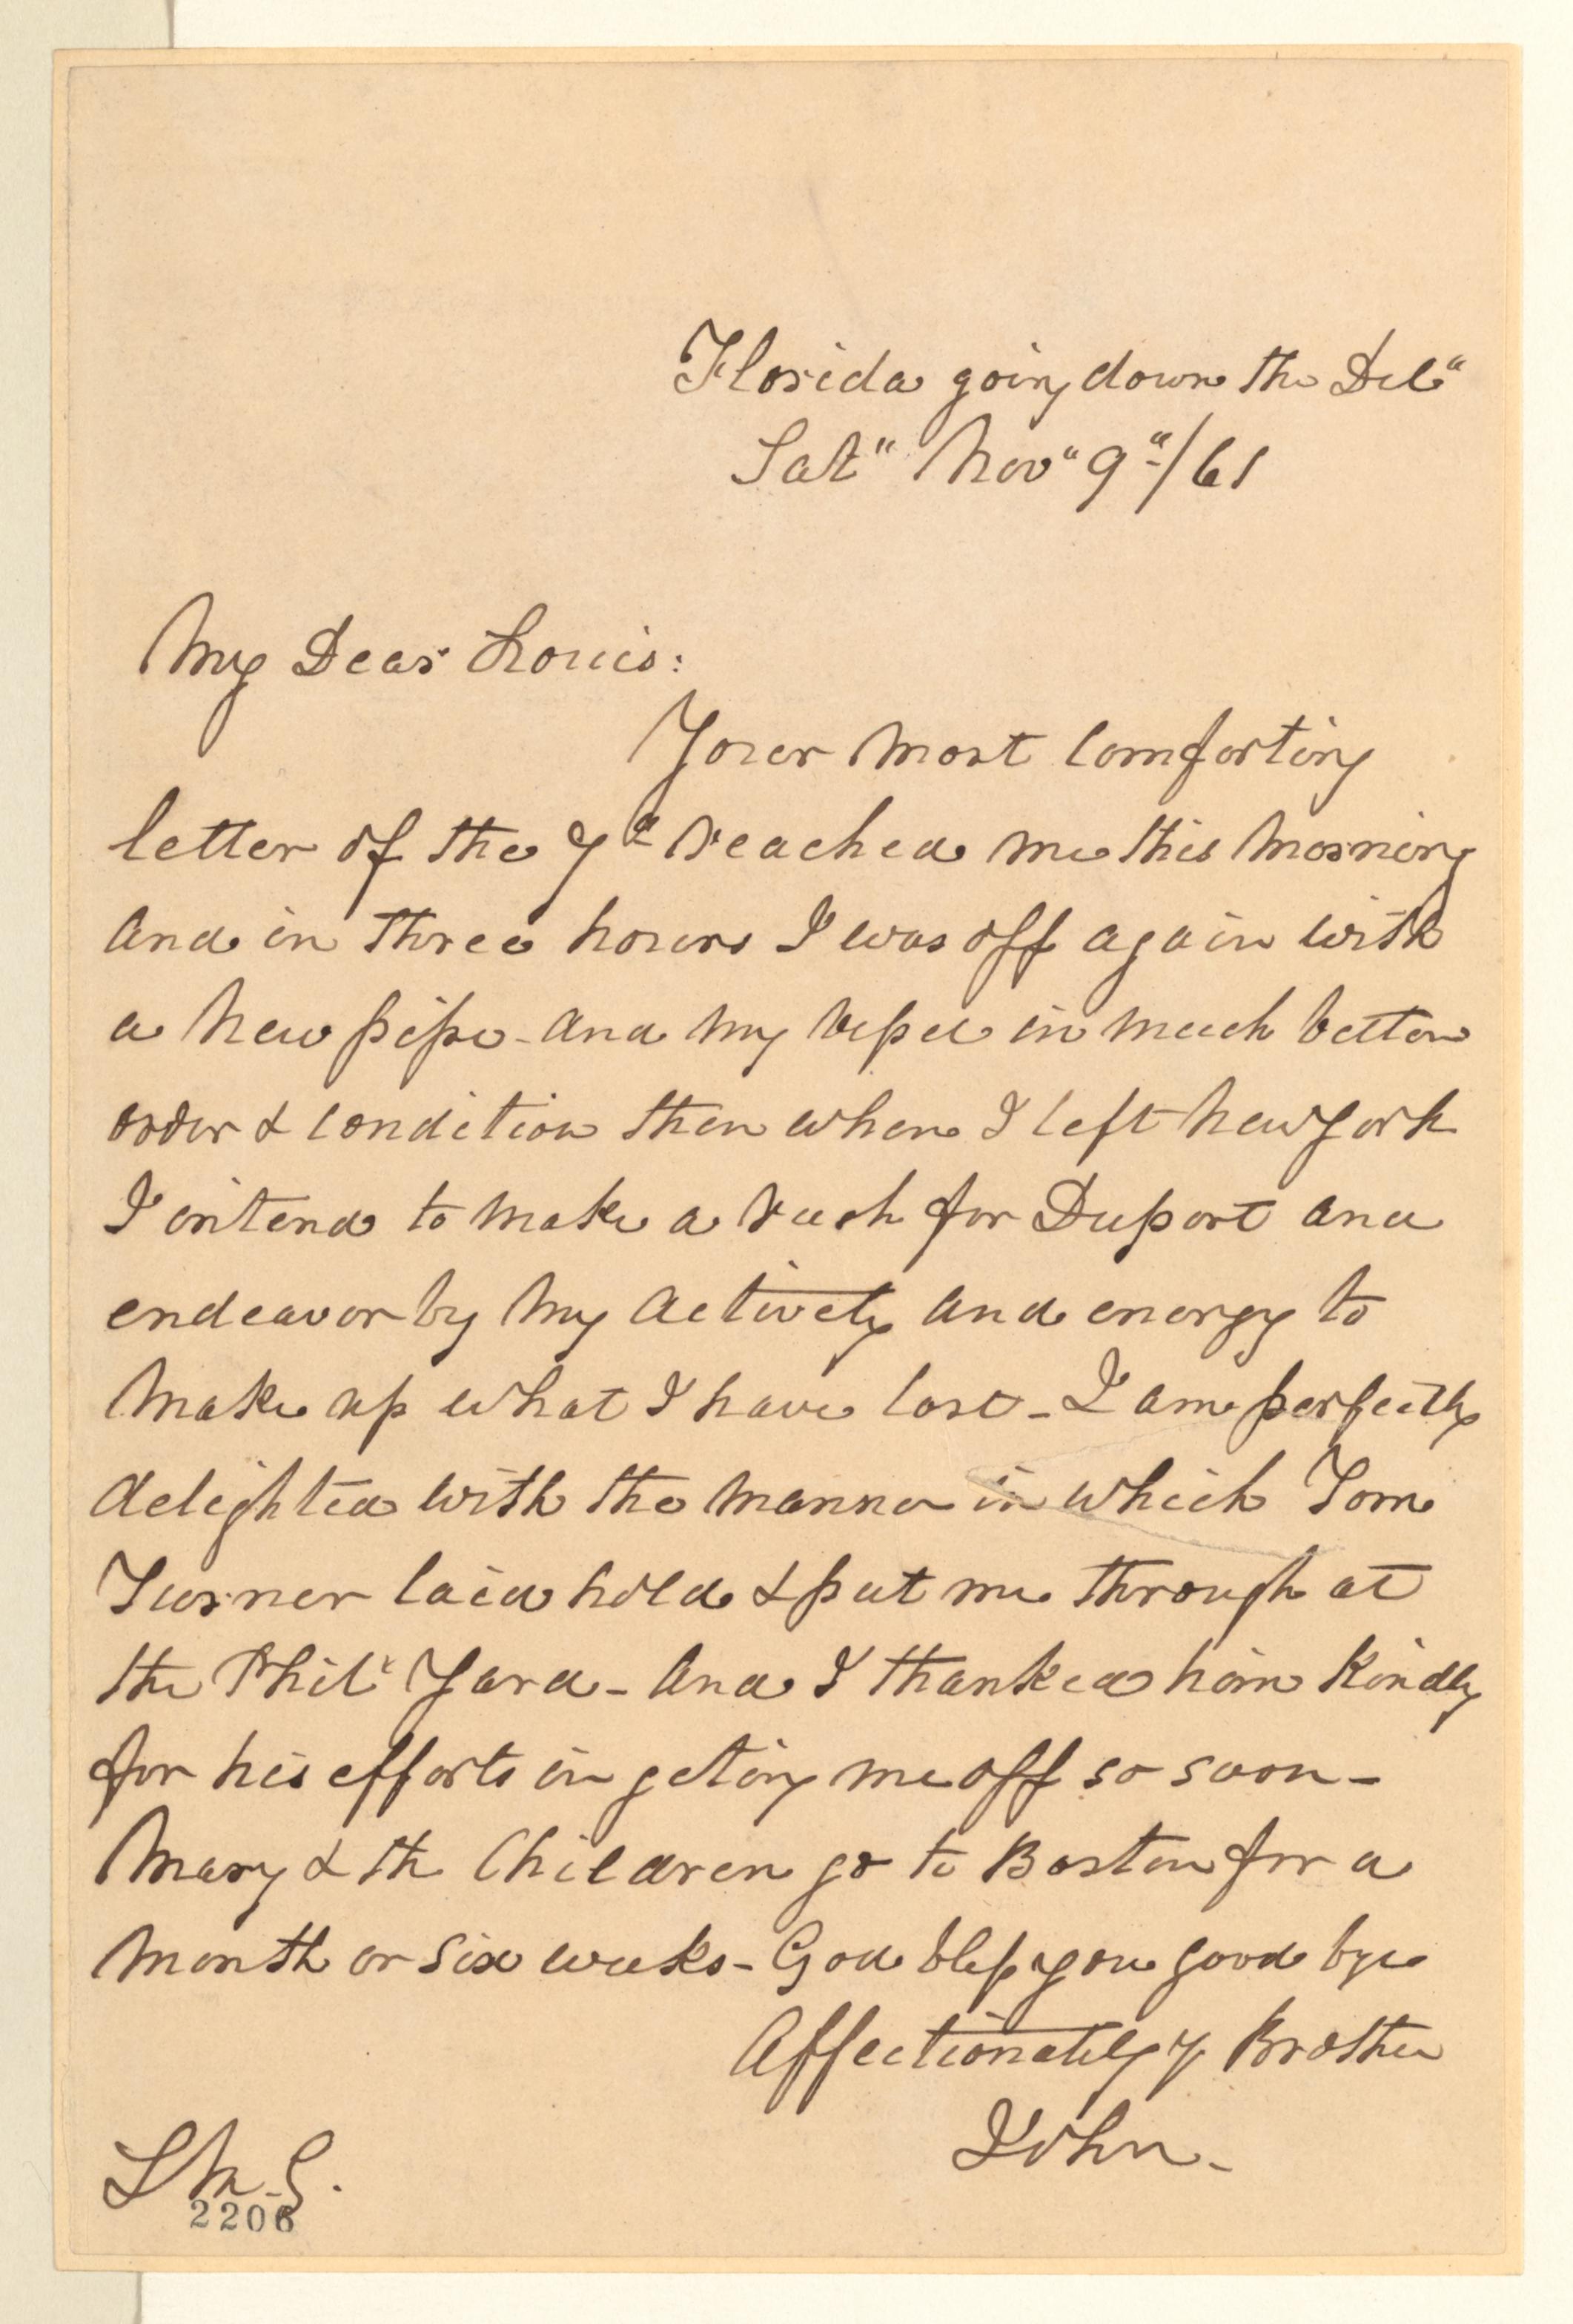 Florida going down the Del"
Sat" Nov" 9"/61
My Dear Louis:
Your most comforting
letter of the 7" reached me this morning
and in three hours I was off again with
a new pipe - and my vessel in much better
order & condition then when I left New York
I intend to make a rush for Duport and
endeavor by my activety and energy to
make up what I have lost - I am perfectly
delighted with the manner in which Tom
Turner laid hold & put me through at
the Phil" Yard - and I thanked him kindly
for his efforts in geting me off so soon -
Mary & the Children go to Boston for a
month or six weeks - God bless you good bye
Affectionately yr Brother
John -
L M. G.
2206